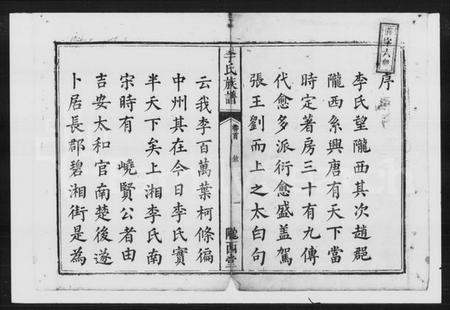 序
李氏望隴西其次趙郡
隴西系興唐有天下當
時定著房三十有九傳
代愈多派衍愈盛蓋駕
張王劉而上之太白句
李氏族譜
卷首
隴西堂
云我李百萬葉柯條徧
中州其在今日李氏實
半天下矣上湘李氏南
宋時有嶢賢公者由
吉安太和官南楚後遂
卜居長郡碧湘街是為